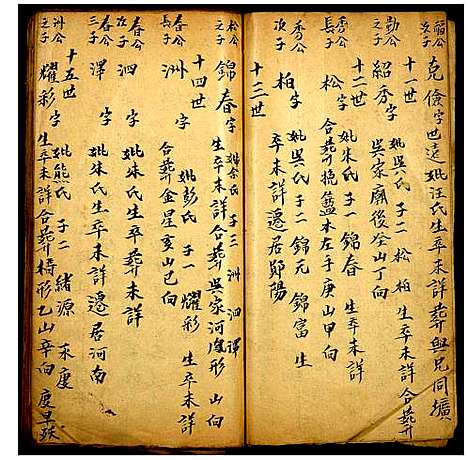 福公次子
克儉字世遠妣汪氏生卒未詳葬與兄同壙
十一世
勤公之子
紹秀字 妣吳氏 子二 松 柏 生卒未詳 合葬
吳家廟後仝山丁向
十二世
秀公長子
松 字 妣朱氏 子一 錦春 生卒未詳
合葬挽籃木左手庚山甲向
秀公次子
柏 字 妣吳氏 子二 錦元 錦富 生
卒未詳遷居鄖陽
十三世
松公之子
錦春字 妣余氏 子三 洲 泗 澤
生卒未詳合葬吳家河 形 山向
十四世
春公長子
洲 字 妣彭氏 子一 耀彩 生卒未詳
合葬金星亥山巳向
春公次子
泗 字 妣朱氏生卒葬未詳
春公三子
澤 字 妣朱氏生卒未詳遷居河南
十五世
洲公之子
耀彩 字 妣熊氏 子二 緒源 永慶
生卒未詳合葬椅形乙山辛向 慶早殁